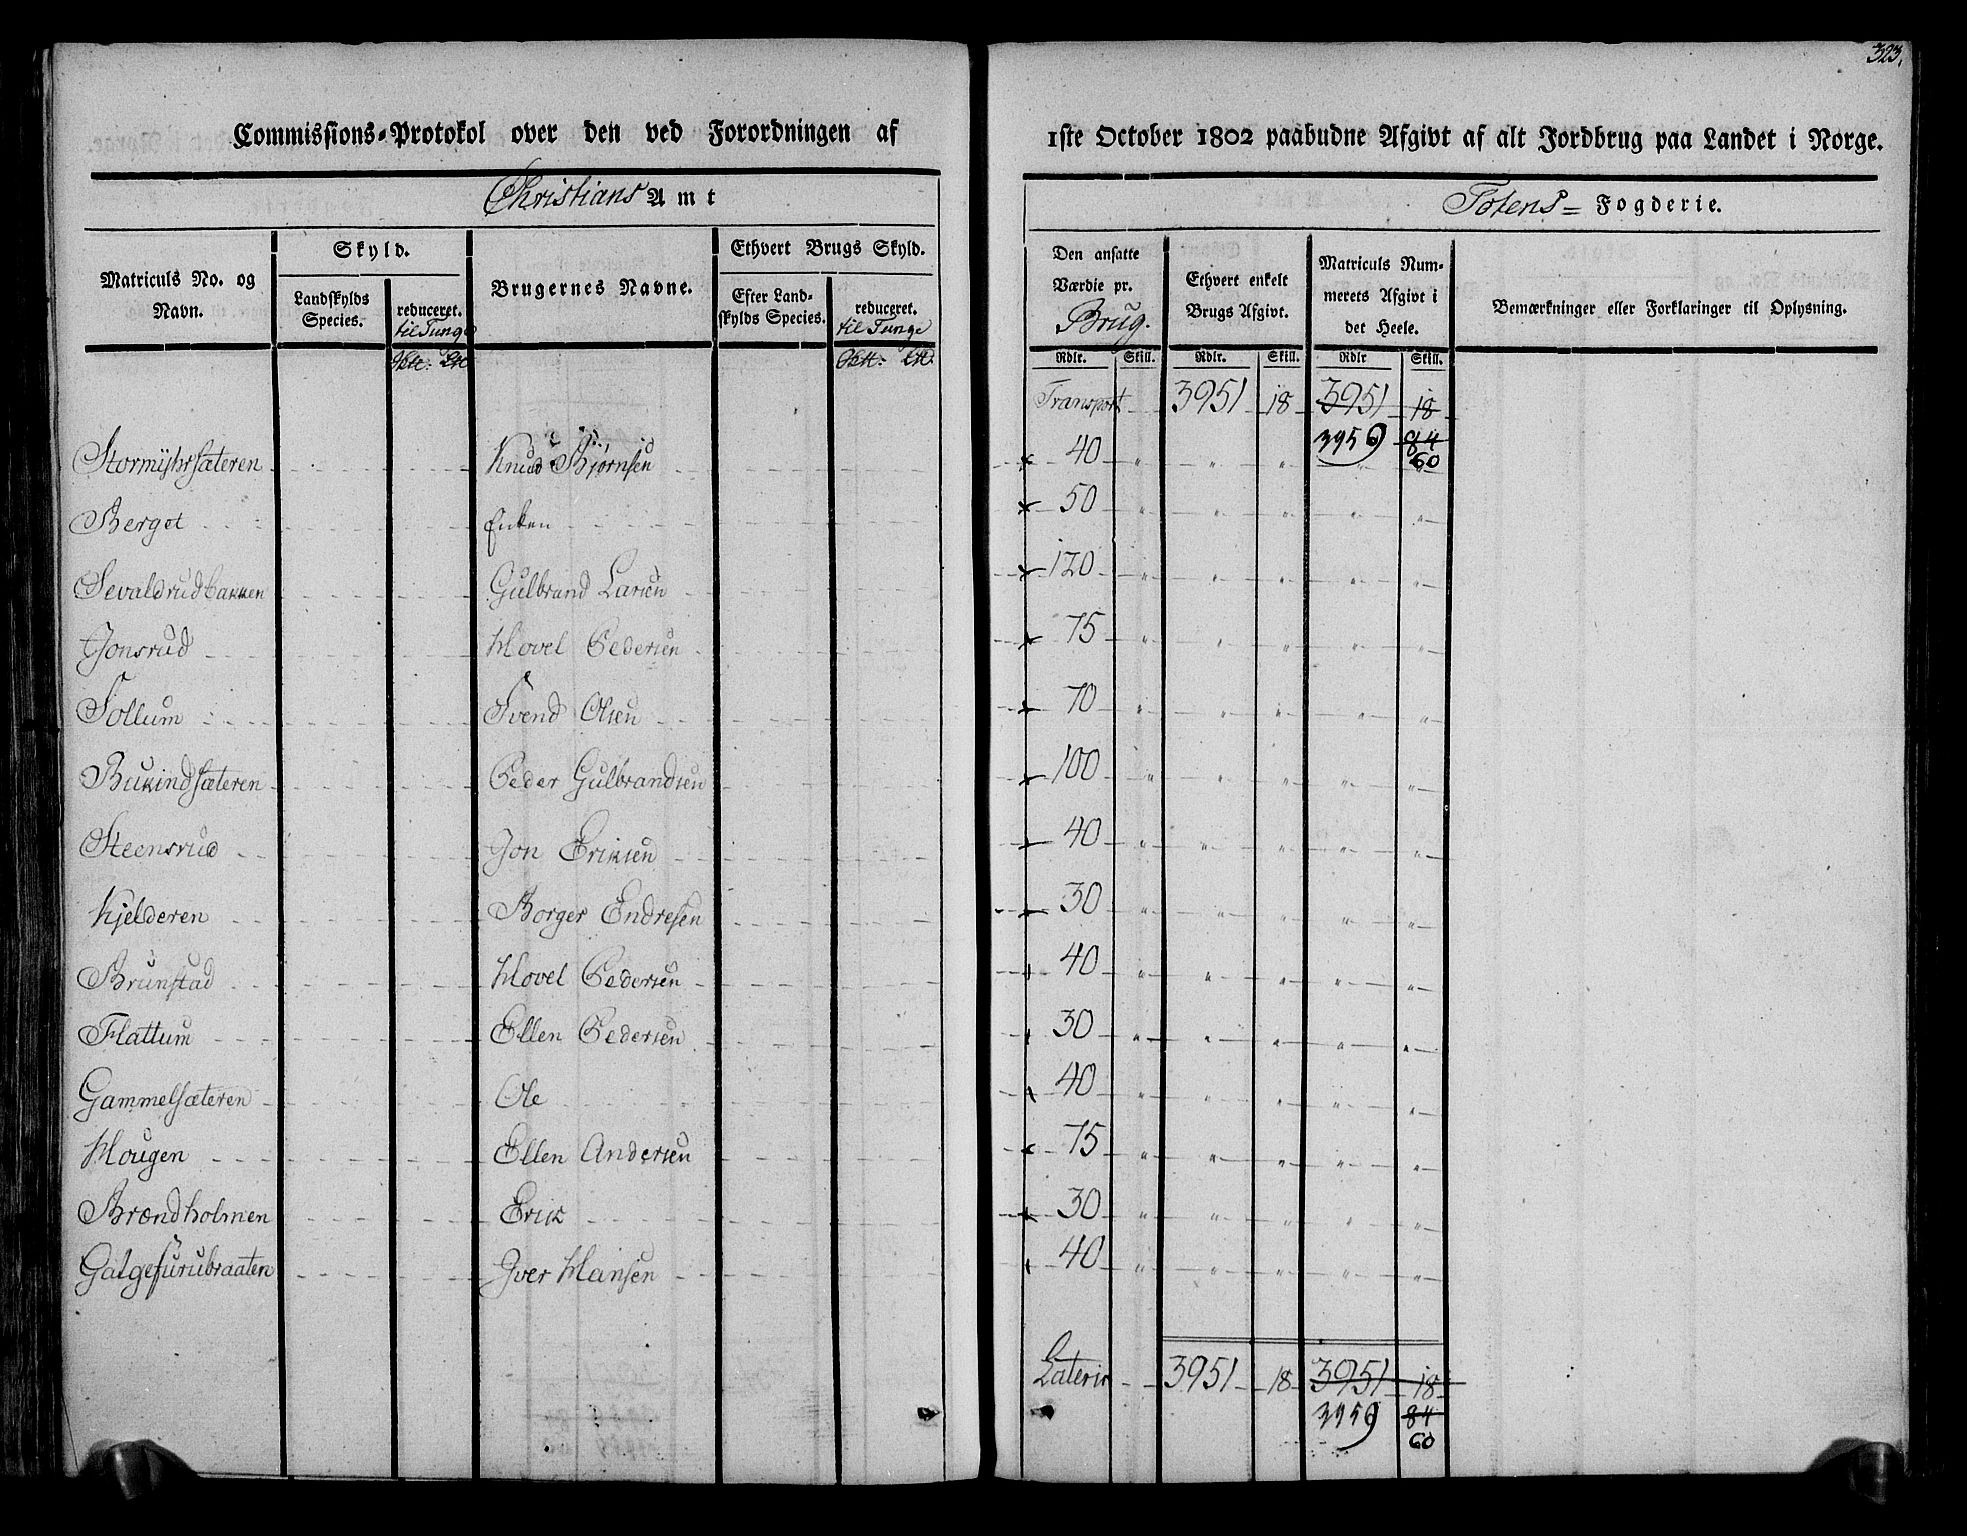 323.
Commissions-Protokol over den ved Forordningen af 1ste October 1802 paabudne Afgivt af alt Jordbrug paa Landet i Norge.
Christians Amt
Totens Fogderie.
Matriculs No. og Navn.
Skyld.
Landskylds Species.
reduceret. til Tunge
Brugernes Navne.
Ethvert Brugs Skyld.
Efter Landskylds Species.
reduceret. til Tunge
Den ansatte Værdie pr. Brug.
Ethvert enkelt Brugs Afgivt.
Matriculs Nummerets Afgivt i det Heele.
Bemærkninger eller Forklaringer til Oplysning.
Rdlr. Skill. Rdlr. Skill. Rdlr Skill.
Transport 3951 18 3951 18
3959 84
60
Stormyhrsæteren Knud Bjørnsen 40 " " " " "
Berget Enken 50 " " " " "
Sevaldrudbakken Gulbrand Larsen 120 " " " " "
Jonsrud Hovel Pedersen 75 " " " " "
Sollum Svend Olsen 70 " " " " "
Bukindsæteren Peder Gulbrandsen 100 " " " " "
Steensrud Jon Eriksen 40 " " " " "
Kjelderen Borger Endresen 30 " " " " "
Brunstad Hovel Pedersen 40 " " " " "
Flattum Ellen Pedersen 30 " " " " "
Gammelsæteren Ole 40 " " " " "
Hougen Ellen Andersen 75 " " " " "
Brændholmen Erik 30 " " " " "
Galgefurubraaten Iver Hansen 40 " " " " "
Lateris 3951 18 3951 18
3959 84
60